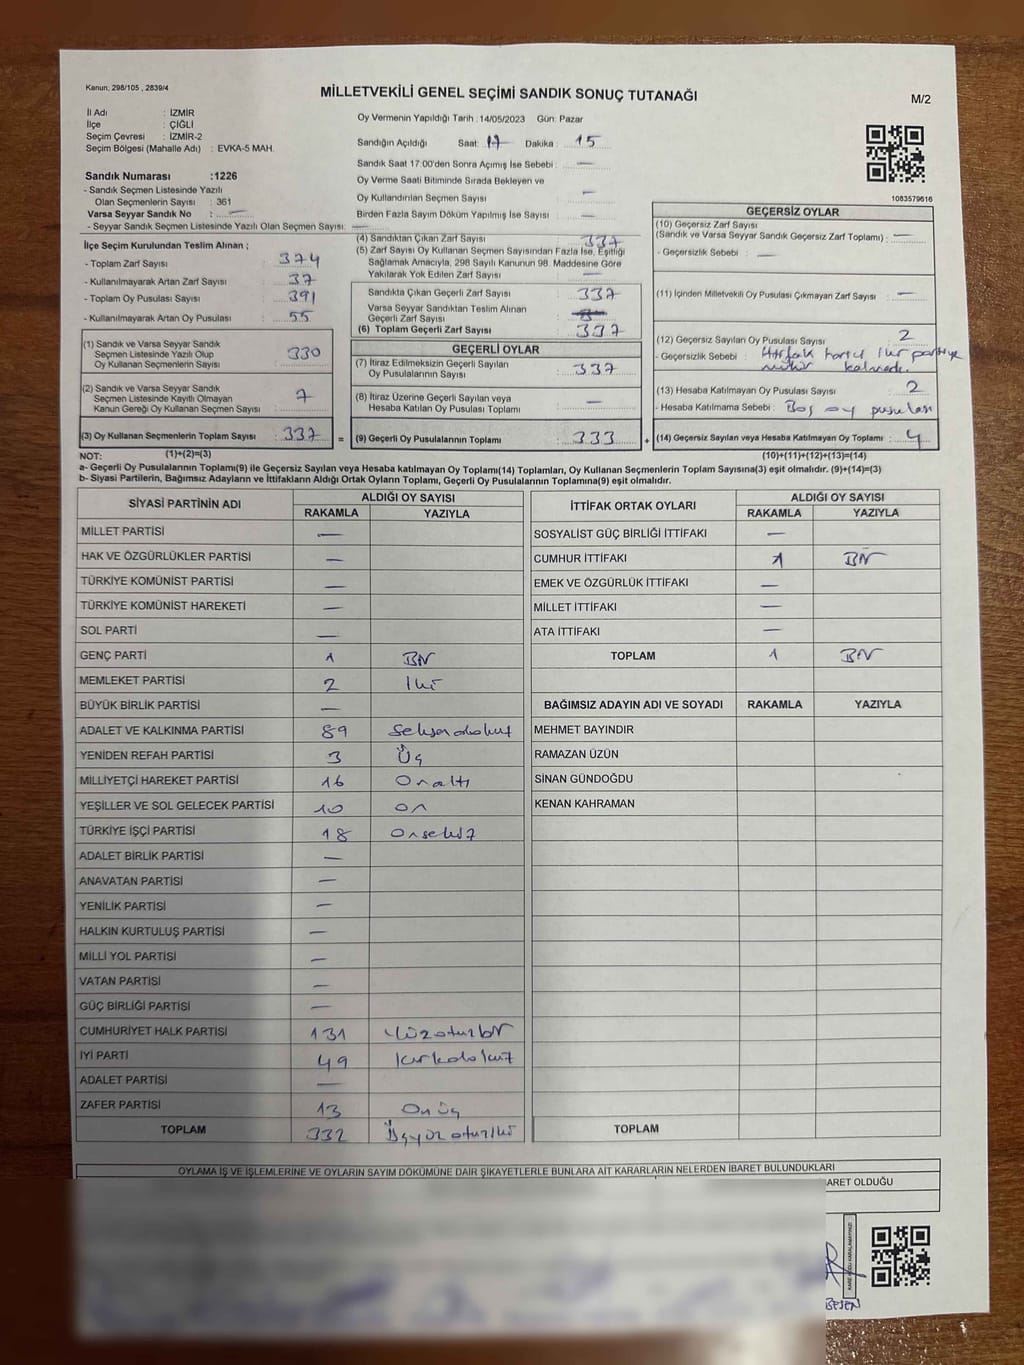 Kanun; 298/105 , 2839/4
MİLLETVEKİLİ GENEL SEÇİMİ SANDIK SONUÇ TUTANAĞI
M/2
İl Adı : İZMİR
İlçe : ÇİĞLİ
Seçim Çevresi : İZMİR-2
Seçim Bölgesi (Mahalle Adı) : EVKA-5 MAH.
Oy Vermenin Yapıldığı Tarih :14/05/2023 Gün: Pazar
Sandığın Açıldığı Saat: 17 Dakika : 15
Sandık Saat 17.00'den Sonra Açımış İse Sebebi : —
Oy Verme Saati Bitiminde Sırada Bekleyen ve
Oy Kullandırılan Seçmen Sayısı : —
Birden Fazla Sayım Döküm Yapılmış İse Sayısı : —
1083579616
Sandık Numarası :1226
- Sandık Seçmen Listesinde Yazılı
Olan Seçmenlerin Sayısı : 361
Varsa Seyyar Sandık No : —
- Seyyar Sandık Seçmen Listesinde Yazılı Olan Seçmen Sayısı: —
İlçe Seçim Kurulundan Teslim Alınan ;
- Toplam Zarf Sayısı : 374
- Kullanılmayarak Artan Zarf Sayısı : 37
- Toplam Oy Pusulası Sayısı : 391
- Kullanılmayarak Artan Oy Pusulası : 55
(1) Sandık ve Varsa Seyyar Sandık
Seçmen Listesinde Yazılı Olup
Oy Kullanan Seçmenlerin Sayısı : 330
(2) Sandık ve Varsa Seyyar Sandık
Seçmen Listesinde Kayıtlı Olmayan
Kanun Gereği Oy Kullanan Seçmen Sayısı : 7
(3) Oy Kullanan Seçmenlerin Toplam Sayısı : 337 =
(4) Sandıktan Çıkan Zarf Sayısı : 337
(5) Zarf Sayısı Oy Kullanan Seçmen Sayısından Fazla İse, Eşitliği
Sağlamak Amacıyla, 298 Sayılı Kanunun 98. Maddesine Göre
Yakılarak Yok Edilen Zarf Sayısı : —
Sandıkta Çıkan Geçerli Zarf Sayısı : 337
Varsa Seyyar Sandıktan Teslim Alınan
Geçerli Zarf Sayısı
(6) Toplam Geçerli Zarf Sayısı : 337
GEÇERLİ OYLAR
(7) İtiraz Edilmeksizin Geçerli Sayılan
Oy Pusulalarının Sayısı : 337
(8) İtiraz Üzerine Geçerli Sayılan veya
Hesaba Katılan Oy Pusulaları Toplamı : —
(9) Geçerli Oy Pusulalarının Toplamı : 333 +
GEÇERSİZ OYLAR
(10) Geçersiz Zarf Sayısı
(Sandık ve Varsa Seyyar Sandık Geçersiz Zarf Toplamı) : —
- Geçersizlik Sebebi : —
(11) İçinden Milletvekili Oy Pusulası Çıkmayan Zarf Sayısı : —
(12) Geçersiz Sayılan Oy Pusulası Sayısı : 2
- Geçersizlik Sebebi : İttifak harici iki partiye
mühür
(13) Hesaba Katılmayan Oy Pusulası Sayısı : 2
- Hesaba Katılmama Sebebi : Boş oy pusulası
(14) Geçersiz Sayılan veya Hesaba Katılmayan Oy Toplamı : 4
NOT: (1)+(2)=(3) (10)+(11)+(12)+(13)=(14)
a- Geçerli Oy Pusulalarının Toplamı(9) ile Geçersiz Sayılan veya Hesaba katılmayan Oy Toplamı(14) Toplamları, Oy Kullanan Seçmenlerin Toplam Sayısına(3) eşit olmalıdır. (9)+(14)=(3)
b- Siyasi Partilerin, Bağımsız Adayların ve İttifakların Aldığı Ortak Oyların Toplamı, Geçerli Oy Pusulalarının Toplamına(9) eşit olmalıdır.
SİYASİ PARTİNİN ADI ALDIĞI OY SAYISI
RAKAMLA YAZIYLA
MİLLET PARTİSİ —
HAK VE ÖZGÜRLÜKLER PARTİSİ —
TÜRKİYE KOMÜNİST PARTİSİ —
TÜRKİYE KOMÜNİST HAREKETİ —
SOL PARTİ —
GENÇ PARTİ 1 BİR
MEMLEKET PARTİSİ 2 İki
BÜYÜK BİRLİK PARTİSİ —
ADALET VE KALKINMA PARTİSİ 89 Seksendokuz
YENİDEN REFAH PARTİSİ 3 Üç
MİLLİYETÇİ HAREKET PARTİSİ 16 Onaltı
YEŞİLLER VE SOL GELECEK PARTİSİ 10 On
TÜRKİYE İŞÇİ PARTİSİ 18 Onsekiz
ADALET BİRLİK PARTİSİ —
ANAVATAN PARTİSİ —
YENİLİK PARTİSİ —
HALKIN KURTULUŞ PARTİSİ —
MİLLİ YOL PARTİSİ —
VATAN PARTİSİ —
GÜÇ BİRLİĞİ PARTİSİ —
CUMHURİYET HALK PARTİSİ 131 Yüzotuzbir
İYİ PARTİ 49 Kırkdokuz
ADALET PARTİSİ —
ZAFER PARTİSİ 13 Onüç
TOPLAM 332 Üçyüzotuziki
İTTİFAK ORTAK OYLARI ALDIĞI OY SAYISI
RAKAMLA YAZIYLA
SOSYALİST GÜÇ BİRLİĞİ İTTİFAKI —
CUMHUR İTTİFAKI 1 BİR
EMEK VE ÖZGÜRLÜK İTTİFAKI —
MİLLET İTTİFAKI —
ATA İTTİFAKI —
TOPLAM 1 BİR
BAĞIMSIZ ADAYIN ADI VE SOYADI RAKAMLA YAZIYLA
MEHMET BAYINDIR
RAMAZAN ÜZÜN
SİNAN GÜNDOĞDU
KENAN KAHRAMAN
TOPLAM
OYLAMA İŞ VE İŞLEMLERİNE VE OYLARIN SAYIM DÖKÜMÜNE DAİR ŞİKAYETLERLE BUNLARA AİT KARARLARIN NELERDEN İBARET BULUNDUKLARI
ARET OLDUĞU
KARE KODU KARALAMAYINIZ!
BESEN